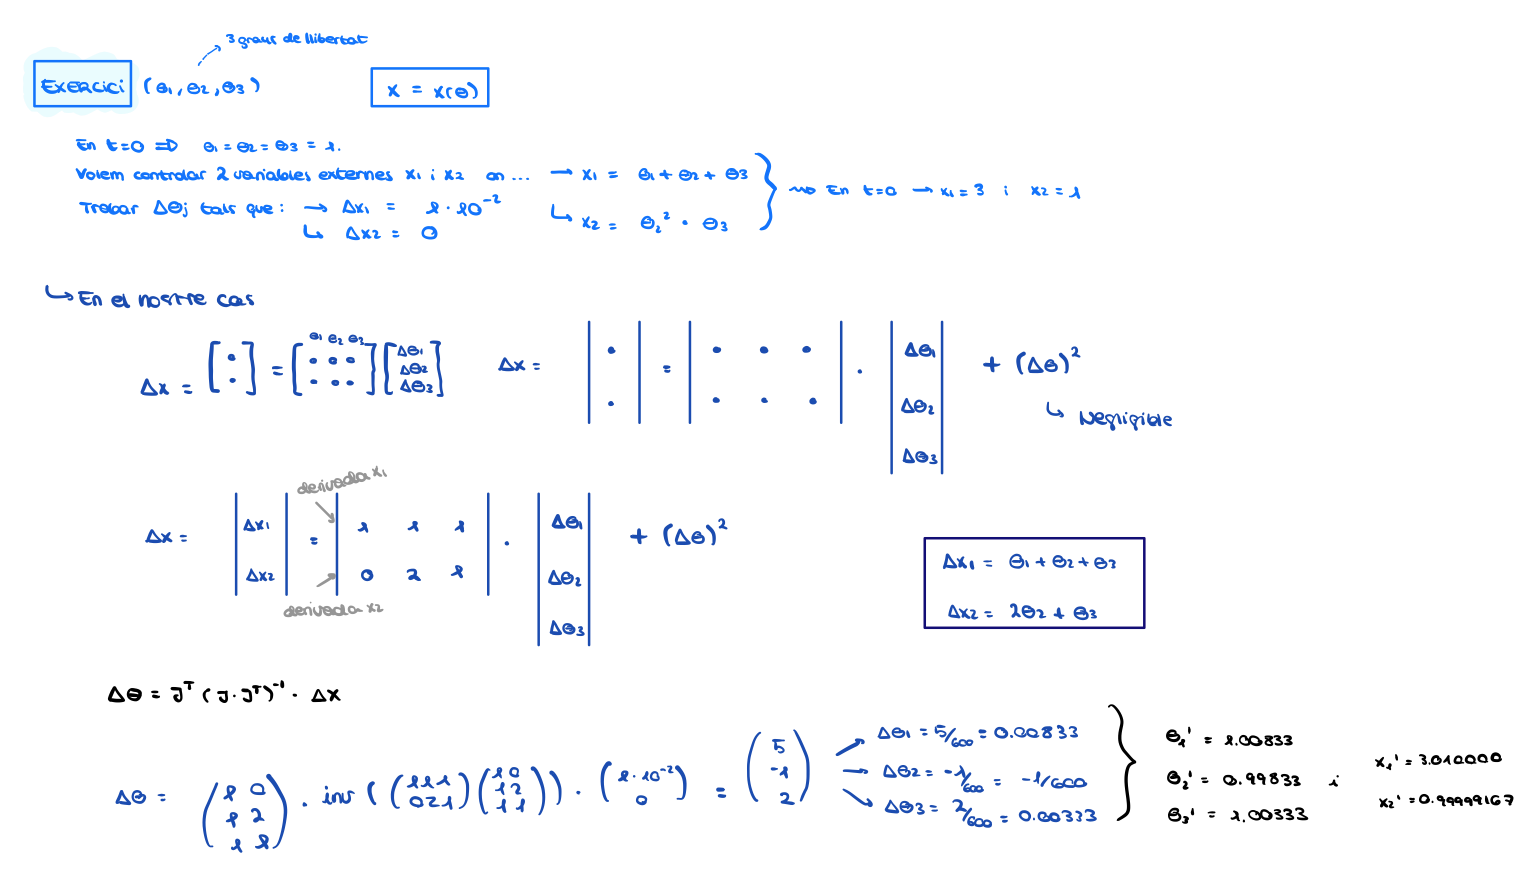 3 graus de llibertat
EXERCICI (θ1, θ2, θ3)
x = x(θ)
En t=0 ⇒ θ1 = θ2 = θ3 = 1.
Volem controlar 2 variables externes x1 i x2 on ... → x1 = θ1 + θ2 + θ3
↳ x2 = θ2² · θ3
En t=0 → x1 = 3 i x2 = 1
Trobar Δθj tals que: → Δx1 = 1·10⁻²
↳ Δx2 = 0
↳ En el nostre cas
θ1 θ2 θ3
Δx = [· ·] = [· · · · · ·] [Δθ1 Δθ2 Δθ3]
Δx = |· ·| = |· · · · · ·| · |Δθ1 Δθ2 Δθ3| + (Δθ)²
↳ Negligible
derivada x1
Δx = |Δx1 Δx2| = |1 1 1 0 2 1| · |Δθ1 Δθ2 Δθ3| + (Δθ)²
derivada x2
Δx1 = θ1 + θ2 + θ3
Δx2 = 2θ2 + θ3
Δθ = Jᵀ (J·Jᵀ)⁻¹ · Δx
Δθ = (1 0 1 2 1 1) · inv((1 1 1 0 2 1)(1 0 1 2 1 1)) · (1·10⁻² 0) = (5 -1 2)
Δθ1 = 5/600 = 0.00833
Δθ2 = -1/600 = -1/600
Δθ3 = 2/600 = 0.00333
θ1' = 1.00833
θ2' = 0.99833 i
θ3' = 1.00333
x1' = 3.010000
x2' = 0.99999167